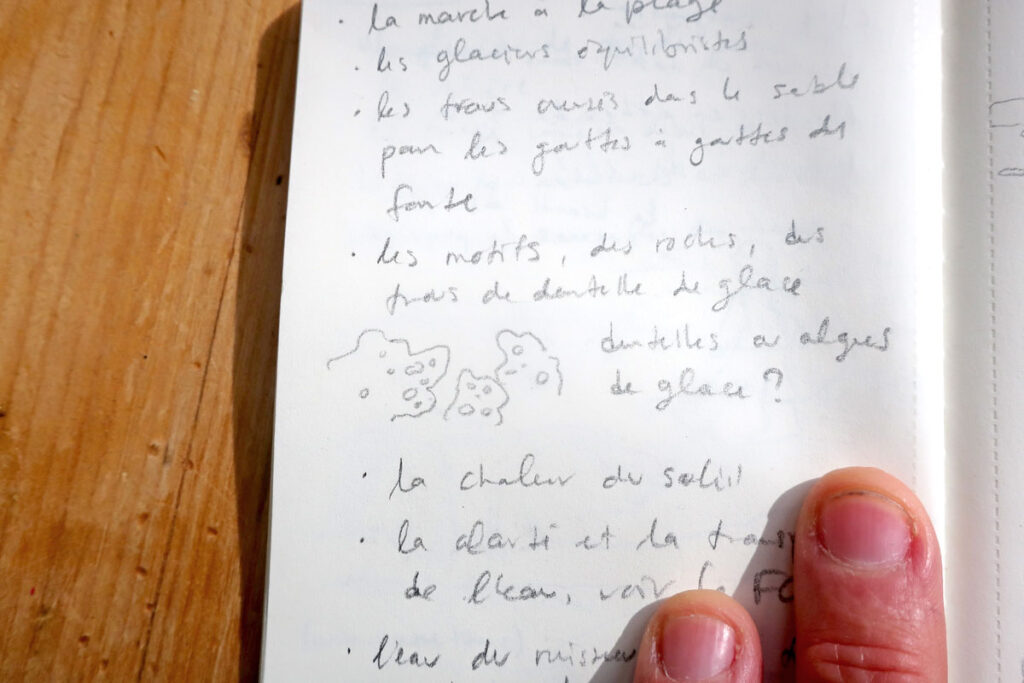 · la marche à la plage
· les glaciers équilibristes
· les trous creusés dans le sable
pour les gouttes à gouttes de
fonte
· les motifs, des roches, des
trous de dentelle de glace
dentelles ou algues
de glace ?
· la chaleur du soleil
· la clarté et la trans
de l'eau, voir le FO
· l'eau du ruisseau